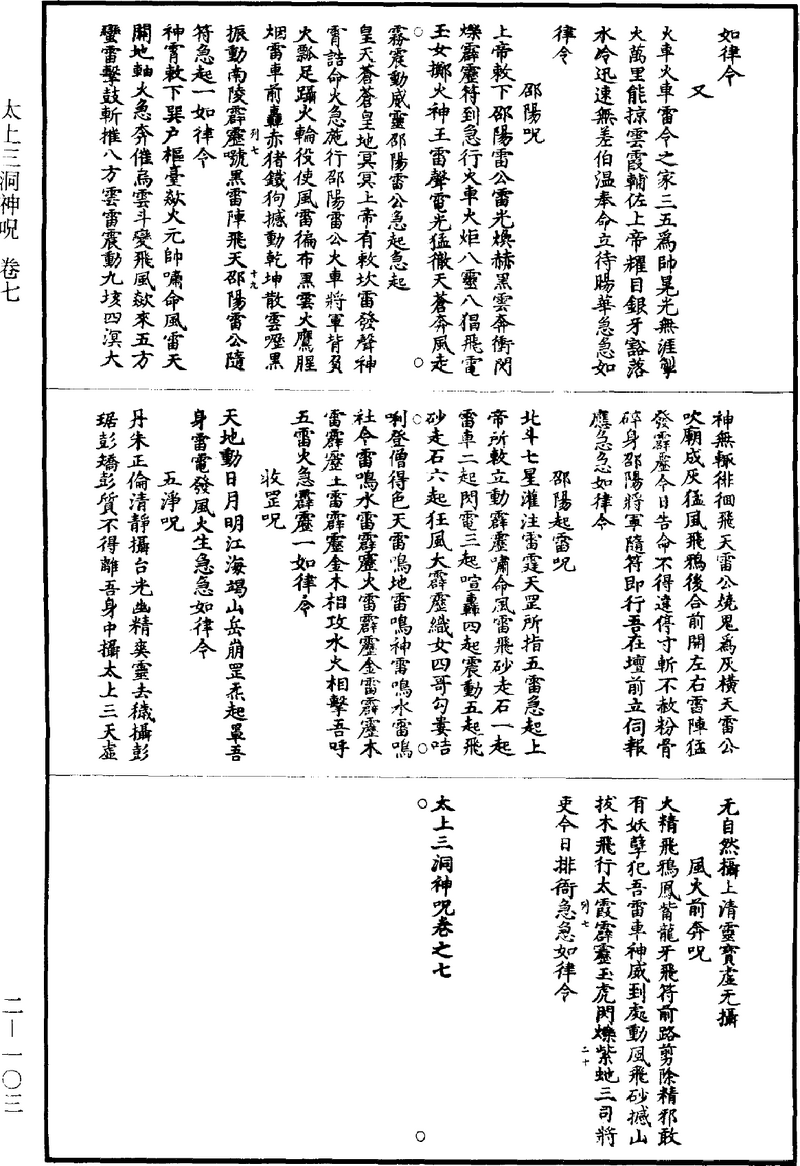 如律令
又
火車火車雷令之家三五爲帥晃光無涯掣
火萬里能掠雲霞輔佐上帝耀目銀牙豁落
水冷迅速無差伯温奉命立待腸華急急如
律令
邵陽呪
上帝敕下邵陽雷公雷光煥赫黑雲奔衝閃
爍霹靂符到急行火車火炬八靈八猖飛電
玉女擲火神王雷聲電光猛徹天蒼奔風走
霧震動威靈邵陽雷公急起急起
皇天蒼蒼皇地冥冥上帝有敕坎雷發聲神
霄誥命火急施行邵陽雷公火車將軍背負
火瓢足躡火輪役使風雷徧布黑雲火鷹腥
烟雷車前轟赤猪鐵狗撼動乾坤散雲噬黑
列七 十九
振動南陵霹靂號黑雷陣飛天邵陽雷公隨
符急起一如律令
神霄敕下巽户樞臺欻火元帥嘯命風雷天
關地軸火急奔催烏雲斗變飛風欻來五方
蠻雷擊鼓斬摧八方雲雷震動九垓四溟大
神無輒徘徊飛天雷公燒鬼爲灰橫天雷公
吹廟成灰猛風飛鴉後合前開左右雷陣猛
發霹靂今日告命不得違停寸斬不赦粉骨
碎身邵陽將軍隨符即行吾在壇前立伺報
應急急如律令
邵陽起雷呪
北斗七星灌注雷霆天罡所指五雷急起上
帝所敕立動霹靂嘯命風雷飛砂走石一起
雷車二起閃電三起喧轟四起震動五起飛
砂走石六起狂風大霹靂織女四哥勾婁咭
唎登僧得色天雷鳴地雷鳴神雷鳴水雷鳴
社令雷鳴水雷霹靂火雷霹靂金雷霹靂木
雷霹靂土雷霹靂金木相攻水火相擊吾呼
五雷火急霹靂一如律令
收罡呪
天地動日月明江海竭山岳崩罡炁起罩吾
身雷電發風火生急急如律令
五淨呪
丹朱正倫清靜攝台光幽精爽靈去穢攝彭
琚彭矯彭質不得離吾身中攝太上三天虛
无自然攝上清靈寶虛无攝
風火前奔呪
火精飛鴉鳳觜龍牙飛符前路剪除精邪敢
有妖孽犯吾雷車神威到處動風飛砂撼山
拔木飛行太霞霹靂玉虎閃爍紫虵三司將
列七 二十
吏今日排衙急急如律令
太上三洞神呪卷之七
太上三洞神呪 卷七
二—一〇三